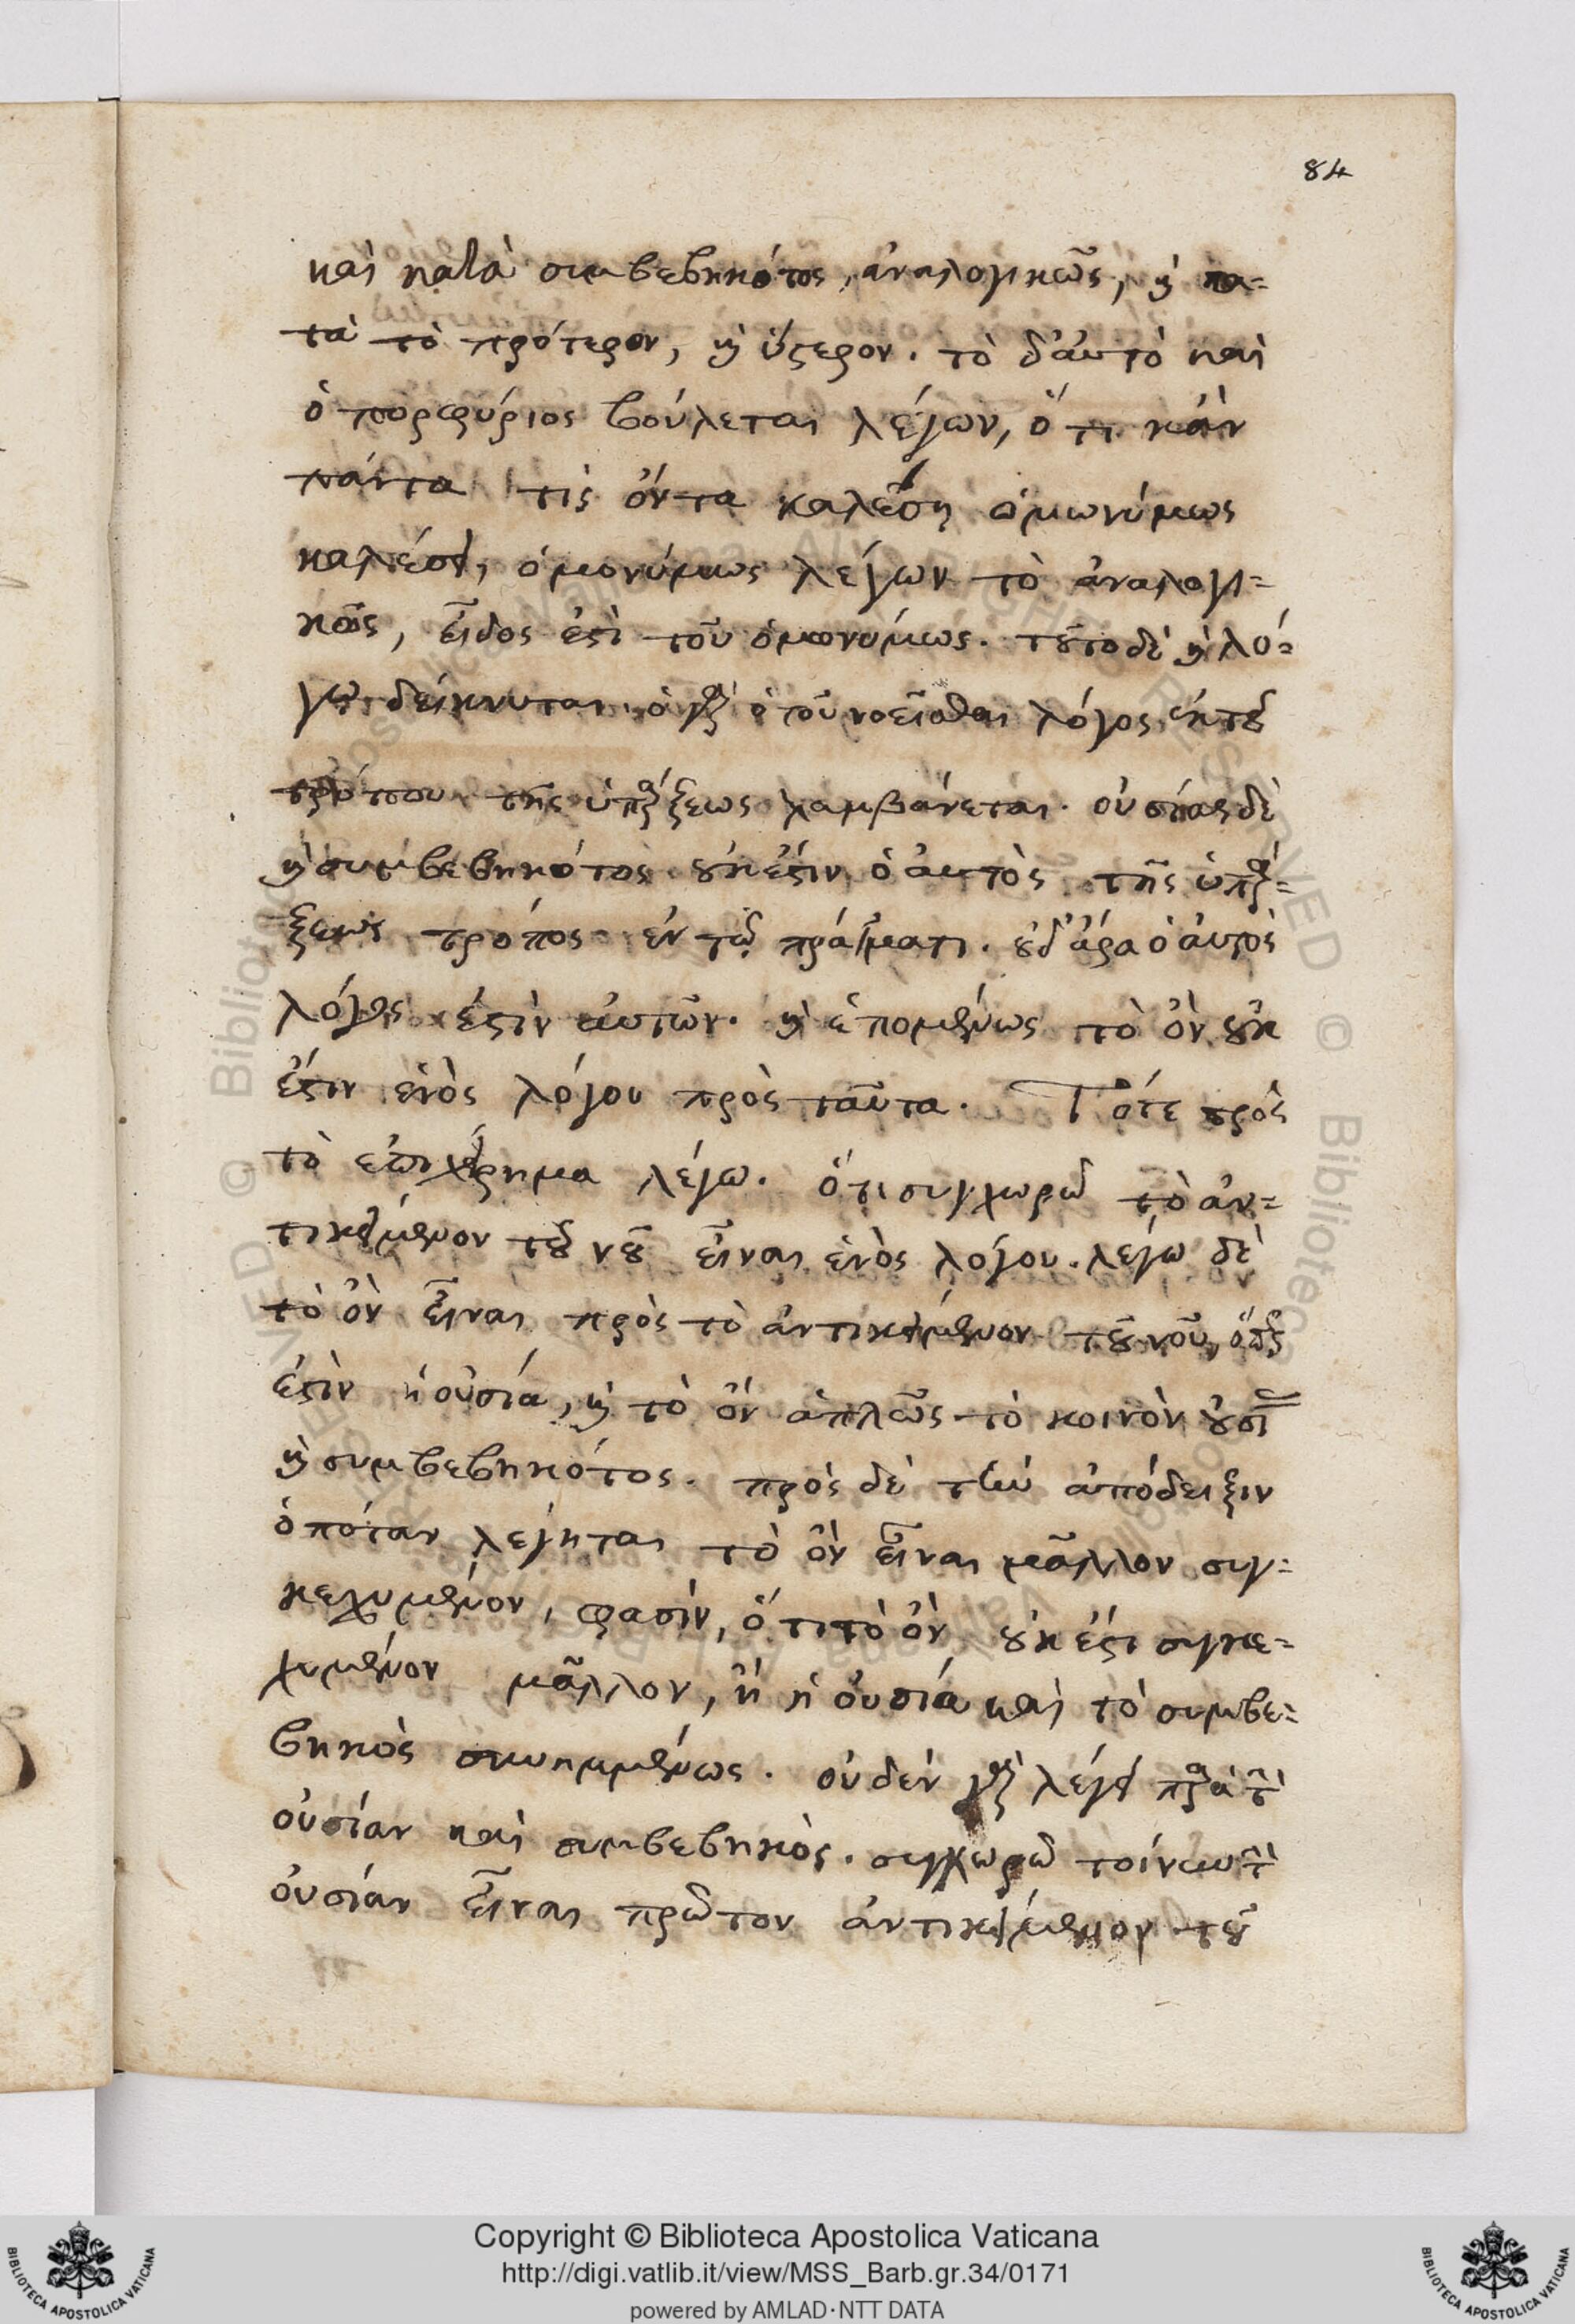 84
καὶ κατὰ συμβεβηκότος, ἀναλογικῶς, ϗ κα=
τὰ τὸ πρότερον, ϗ ὕϛερον. τὸ δ' αὐτὸ καὶ
ὁ πορφύριος βούλεται λέγων, ὅτι κἂν
πάντα τὶς ὄντα καλέσῃ ὁμωνύμως
καλέσει, ὁμονύμως λέγων τὸ ἀναλογι=
κῶς, εἶδος ἐϛὶ τοῦ ὁμωνύμως. τȣ͂το δὲ ϗ λό=
γῳ δείκνυται. ὁ γὰρ ὁ τοῦ νοεῖσθαι λόγος ἐκ τȣ͂
τρόπου τῆς ὑπάρξεως λαμβάνεται. οὐσίας δὲ
ϗ συμβεβηκότος ȣ̓κ ἔϛιν ὁ αὐτὸς τῆς ὑπάρ=
ξεως τρόπος ἐν τῷ πράγματι. ȣ̓δ' ἄρα ὁ αὐτὸς
λόγος ἐϛὶν αὐτῶν. ϗ ἑπομένως τὸ ὂν ȣ̓κ
ἔϛιν ἑνὸς λόγου πρὸς ταῦτα. Τότε πρὸς
τὸ ἐπιχείρημα λέγω. ὅτι συγχωρῶ τὸ ἀν=
τικείμενον τȣ͂ νȣ͂ εἶναι ἑνὸς λόγου. λέγω δὲ
τὸ ὂν εἶναι πρὸς τὸ ἀντικείμενον τȣ͂ νοῦ, ὅπερ
ἐϛὶν ἡ οὐσία, ϗ τὸ ὂν ἁπλῶς τὸ κοινὸν ȣ̓σί
ϗ συμβεβηκότος. πρὸς δὲ τὴν ἀπόδειξιν
ὁπόταν λέγηται τὸ ὂν εἶναι μᾶλλον συγ=
κεχυμένον, φασὶν, ὅτι τὸ ὂν ȣ̓κ ἔϛι συγκε=
χυμένον μᾶλλον, ἢ ἡ οὐσία καὶ τὸ συμβε=
βηκὸς συνημμένως. οὐδὲν γὰρ λέγει παρὰ τὴν
οὐσίαν καὶ συμβεβηκὸς. συγχωρῶ τοίνυν τὴν
οὐσίαν εἶναι πρῶτον ἀντικείμενον τȣ͂
Copyright © Biblioteca Apostolica Vaticana
http://digi.vatlib.it/view/MSS_Barb.gr.34/0171
powered by AMLAD·NTT DATA